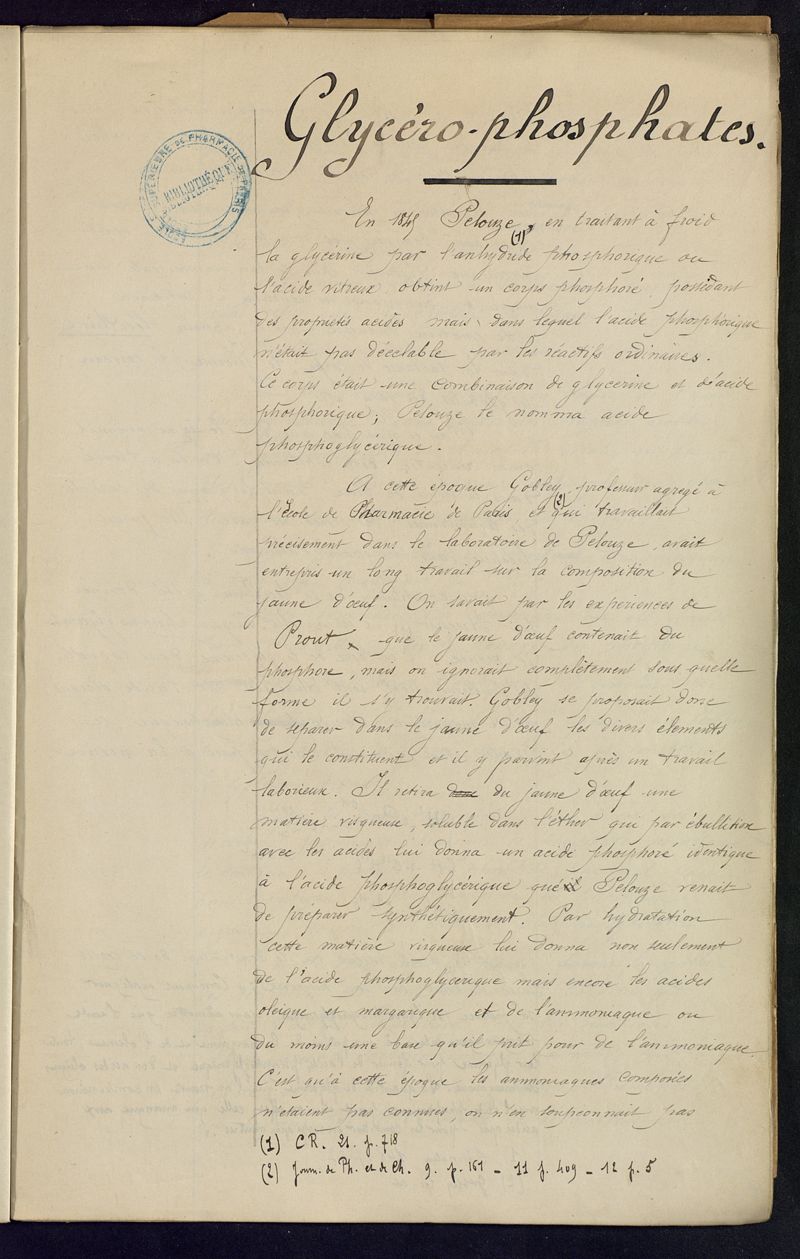 Glycéro-phosphates.
ÉCOLE SUPÉRIEURE DE PHARMACIE DE PARIS
BIBLIOTHÈQUE
En 1845 Pelouze (1), en traitant à froid
la glycérine par l'anhydride phosphorique ou
l'acide vitreux obtint un corps phosphoré possédant
des propriétés acides mais dans lequel l'acide phosphorique
n'était pas décelable par les réactifs ordinaires.
Ce corps était une combinaison de glycérine et d'acide
phosphorique; Pelouze le nomma acide
phosphoglycérique.
A cette époque Gobley (2), professeur agrégé à
l'École de Pharmacie de Paris et qui travaillait
précisement dans le laboratoire de Pelouze, avait
entrepris un long travail sur la composition du
jaune d'œuf. On savait par les expériences de
Prout que le jaune d'œuf contenait du
phosphore, mais on ignorait complètement sous quelle
forme il s'y trouvait. Gobley se proposait donc
de séparer dans le jaune d'œuf les divers éléments
qui le constituent et il y parvint après un travail
laborieux. Il retira du jaune d'œuf une
matière visqueuse, soluble dans l'éther qui par ébullition
avec les acides lui donna un acide phosphoré identique
à l'acide phosphoglycérique que Pelouze venait
de préparer synthétiquement. Par hydratation
cette matière visqueuse lui donna non seulement
de l'acide phosphoglycérique mais encore les acides
oléique et margarique et de l'ammoniaque ou
du moins une base qu'il prit pour de l'ammoniaque.
C'est qu'à cette époque les ammoniaques composées
n'étaient pas connues, on n'en soupçonnait pas
(1) CR. 21. p. 718
(2) Journ. de Ph. et de Ch. 9. p. 161 - 11 p. 409 - 12 p. 5